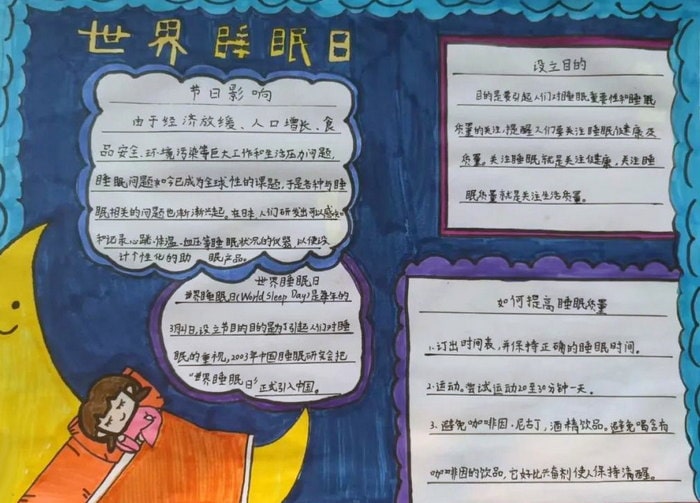 世界睡眠日
节日影响
由于经济放缓、人口增长、食
品安全、环境污染等巨大工作和生活压力问题,
睡眠问题如今已成为全球性的课题,于是各种与睡
眠相关的问题也渐渐兴起,在日本,人们研发出可以感知
和记录心跳、体温、血压等睡眠状况的仪器,以便设
计个性化的助 眠产品。
设立目的
目的是要引起人们对睡眠重要性和睡眠
质量的关注,提醒人们要关注睡眠健康及
质量。关注睡眠就是关注健康,关注睡
眠质量就是关注生活质量。
世界睡眠日
世界睡眠日(World Sleep Day)是每年的
3月21日,设立节目的目的是为了引起人们对睡
眠的重视,2003年中国睡眠研究会把
“世界睡眠日”正式引入中国。
如何提高睡眠质量
1.订出时间表,并保持正确的睡眠时间。
2.运动。尝试运动20至30分钟一天。
3.避免咖啡因、尼古丁,酒精饮品。避免喝含有
咖啡因的饮品,它好比兴奋剂使人保持清醒。